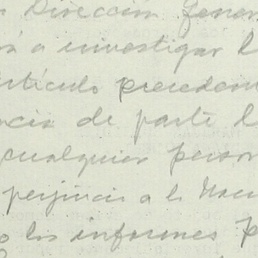 Dirección Gener
rá a investigar l
rtículo preceden
ncia de parte l
cualquier person
perjuicio a la Nac
o los informes p